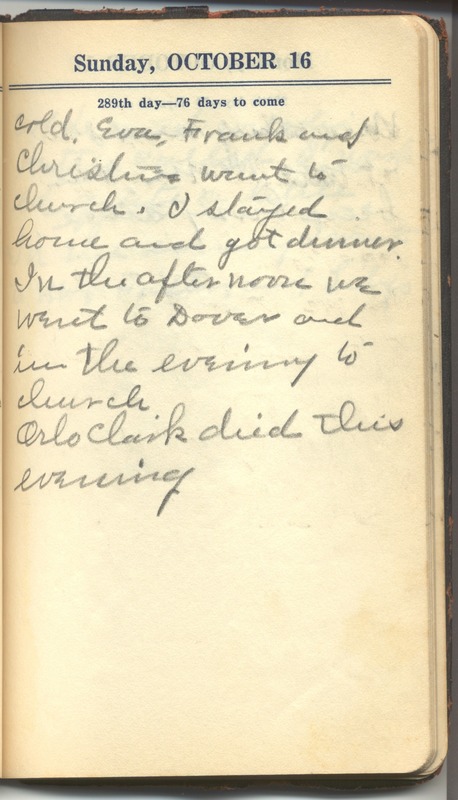 Sunday, OCTOBER 16
289th day—76 days to come
cold. Eva, Frank and
Christine went to
church. I stayed
home and got dinner.
In the afternoon we
went to Dover and
in the evening to
church
Orlo Clark died this
evening